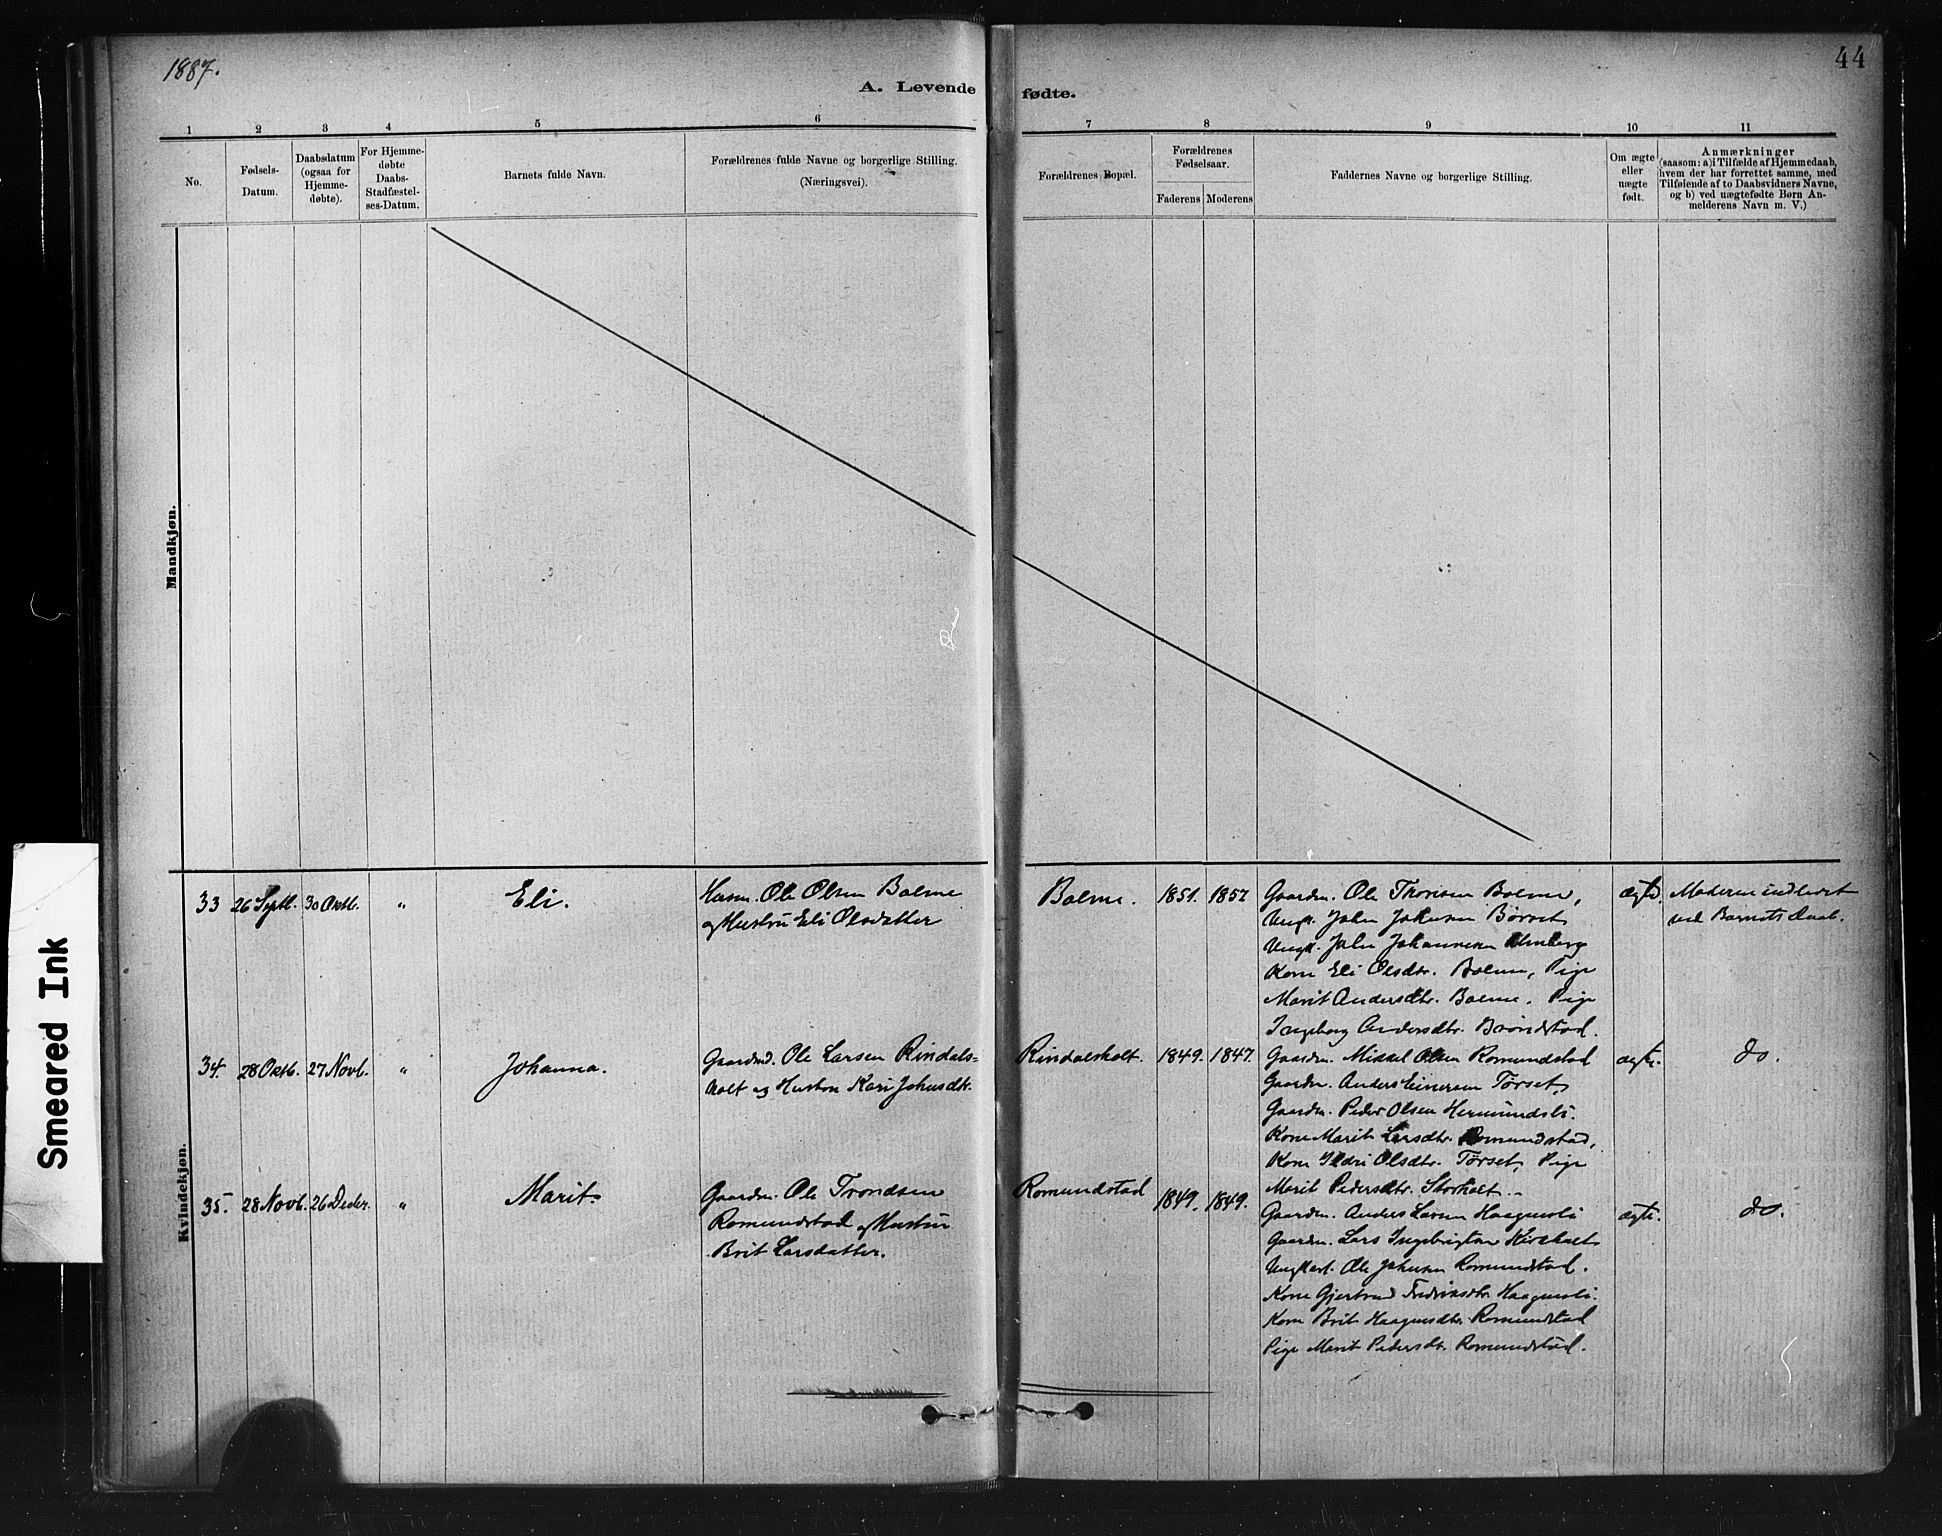 1887.
44
A. Levende fødte.
1 2 3 4 5 6 7 8 9 10 11
No.
Fødsels-
Datum.
Daabsdatum
(ogsaa for
Hjemme-
døbte).
For Hjemme-
døbte
Daabs-
Stadfæstel-
ses-Datum.
Barnets fulde Navn.
Forældrenes fulde Navne og borgerlige Stilling.
(Næringsvei).
Forældrenes Bopæl.
Forældrenes
Fødselsaar.
Faderens Moderens
Faddernes Navne og borgerlige Stilling.
Om ægte
eller
uægte
født.
Anmærkninger
(saasom: a) i Tilfælde af Hjemmedaab,
hvem der har forrettet samme, med
Tilføiende af to Daabsvidners Navne,
og b) ved uægtefødte Børn An-
melderens Navn m. V.)
Mandkjøn.
Kvindekjøn.
33 26 Septb. 30 Oktb. " Eli.
Husm. Ole Olsen Bolme
og Hustru Eli Olsdatter
Bolme. 1851. 1852
Gaardm. Ole Thonsen Bolme,
Ungk. John Johnsen Børset
Ungk. John Johannesen
Kone Eli Olsdtr. Bolme, Pige
Marit Andersdtr. Bolme. Pige
Ingeborg Andersdtr. Brøndstad.
ægte. Moderen indledet
ved Barnets Daab.
34. 28 Oktb. 27 Novb. " Johanna.
Gaardmd. Ole Larsen Rindals-
holt og Hustru Kari Johnsdtr.
Rindalsholt. 1849. 1847.
Gaardm. Mikkel Olsen Romundstad
Gaardm. Anders Einersen Tørset,
Gaardm. Peder Olsen Hermundsli.
Kone Marit Larsdtr. Romundstad,
Kone Ildri Olsdtr. Tørset, Pige
Marit Pedersdtr. Storholt.
ægte. do.
35. 28 Novb. 26 Decbr. " Marit.
Gaardm. Ole Trondsen
Romundstad og Hustru
Brit Larsdatter.
Romundstad 1849. 1849.
Gaardm. Anders Larsen Haagensli
Gaardm. Lars Ingebrigtsen Kirkholt
Ungkarl. Ole Johnsen Romundstad.
Kone Gjertrud Fredriksdtr. Haagensli.
Kone Brit Haagensdtr. Romundstad
Pige Marit Pedersdtr. Romundstad.
ægte. do.
Smeared Ink